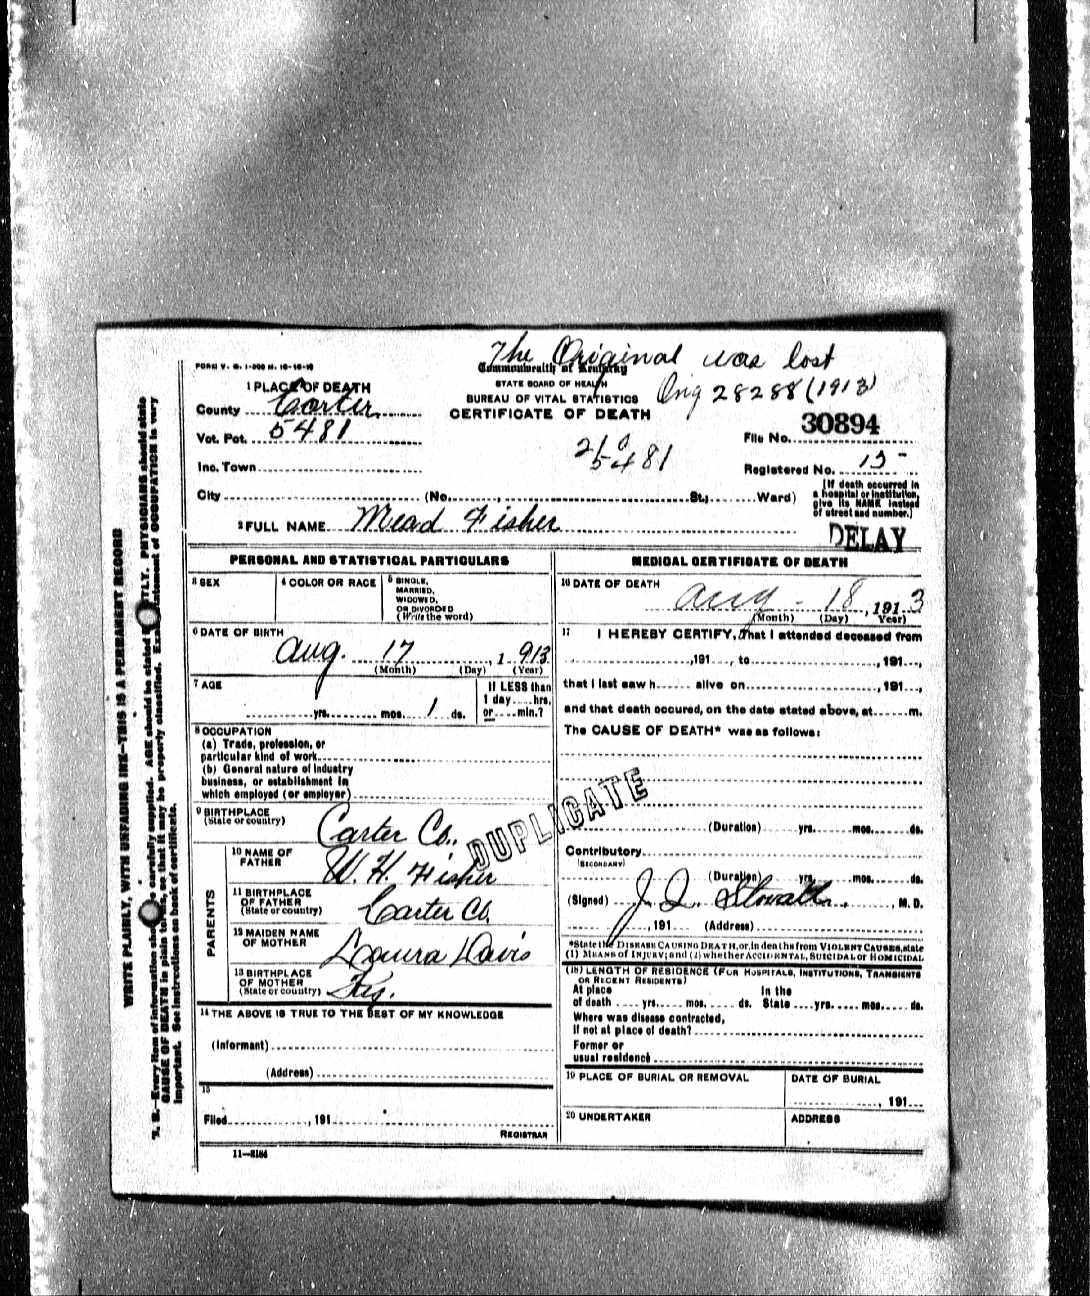 The Original was lost
FORM V. S. 1-200 M. 10-18-10
Commonwealth of Kentucky
STATE BOARD OF HEALTH
BUREAU OF VITAL STATISTICS
CERTIFICATE OF DEATH
Orig 28288 (1913)
1 PLACE OF DEATH
County Carter
Vot. Pct. 5481
Inc. Town
City (No. , St.; Ward)
5481
File No. 30894
Registered No. 15
(If death occurred in
a hospital or institution,
give its NAME instead
of street and number.)
2 FULL NAME Mead Fisher
DELAY
PERSONAL AND STATISTICAL PARTICULARS
3 SEX
4 COLOR OR RACE
5 SINGLE,
MARRIED,
WIDOWED,
OR DIVORCED
(Write the word)
6 DATE OF BIRTH
Aug. 17 , 1 913
(Month) (Day) (Year)
7 AGE
yrs. mos. 1 ds.
If LESS than
1 day hrs.
or min.?
8 OCCUPATION
(a) Trade, profession, or
particular kind of work
(b) General nature of industry
business, or establishment in
which employed (or employer)
9 BIRTHPLACE
(State or country) Carter Co.,
PARENTS
10 NAME OF
FATHER W. H. Fisher
11 BIRTHPLACE
OF FATHER
(State or country) Carter Co.
12 MAIDEN NAME
OF MOTHER Laura Davis
13 BIRTHPLACE
OF MOTHER
(State or country) Ky.
14 THE ABOVE IS TRUE TO THE BEST OF MY KNOWLEDGE
(Informant)
(Address)
15
Filed , 191
REGISTRAR
11—3184
DUPLICATE
MEDICAL CERTIFICATE OF DEATH
16 DATE OF DEATH
Aug - 18 , 191 3
(Month) (Day) (Year)
17 I HEREBY CERTIFY, That I attended deceased from
,191 , to , 191 ,
that I last saw h alive on , 191 ,
and that death occured, on the date stated above, at m.
The CAUSE OF DEATH* was as follows:
(Duration) yrs. mos. ds.
Contributory
(SECONDARY)
(Duration) yrs. mos. ds.
(Signed) J. Q. Stovall , M. D.
, 191 (Address)
*State the DISEASE CAUSING DEATH, or, in deaths from VIOLENT CAUSES, state
(1) MEANS of INJURY; and (2) whether ACCIDENTAL, SUICIDAL or HOMICIDAL
(18) LENGTH OF RESIDENCE (FOR HOSPITALS, INSTITUTIONS, TRANSIENTS
OR RECENT RESIDENTS)
At place In the
of death yrs. mos. ds. State yrs. mos. ds.
Where was disease contracted,
if not at place of death?
Former or
usual residence
19 PLACE OF BURIAL OR REMOVAL
DATE OF BURIAL
, 191
20 UNDERTAKER
ADDRESS
WRITE PLAINLY, WITH UNFADING INK—THIS IS A PERMANENT RECORD
N. B.—Every item of information should be carefully supplied. AGE should be stated EXACTLY. PHYSICIANS should state
CAUSE OF DEATH in plain terms, so that it may be properly classified. Exact statement of OCCUPATION is very
important. See instructions on back of certificate.